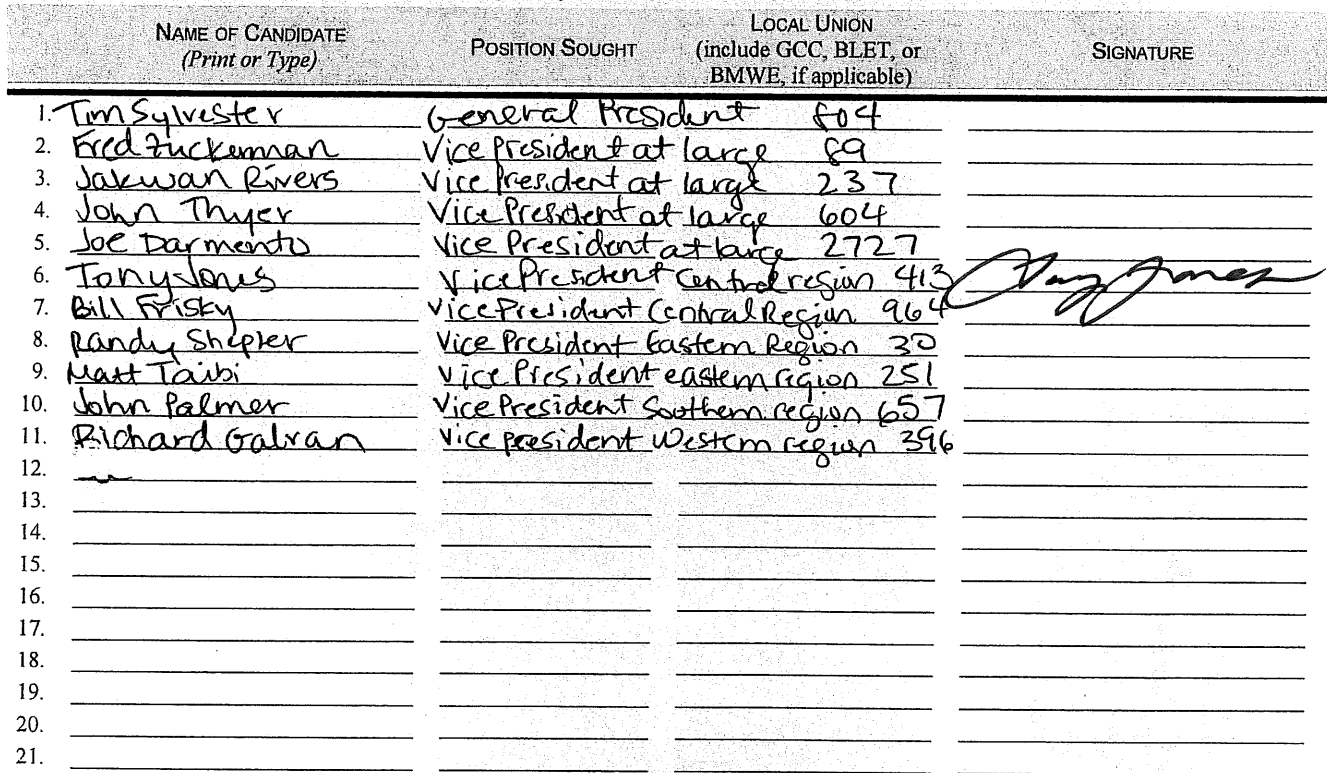 NAME OF CANDIDATE (Print or Type) POSITION SOUGHT LOCAL UNION (include GCC, BLET, or BMWE, if applicable) SIGNATURE
1. Tim Sylvester General President 804
2. Fred Zuckerman Vice President at large 89
3. Jakwan Rivers Vice President at large 237
4. John Thyer Vice President at large 604
5. Joe Darmento Vice President at large 2727
6. Tony Jones Vice President Central region 413 Tony Jones
7. Bill Frisky Vice President Central Region 964
8. Randy Shepler Vice President Eastern Region 30
9. Matt Taibi Vice President eastern region 251
10. John Palmer Vice President Southern region 657
11. Richard Galvan Vice president Western region 396
12.
13.
14.
15.
16.
17.
18.
19.
20.
21.